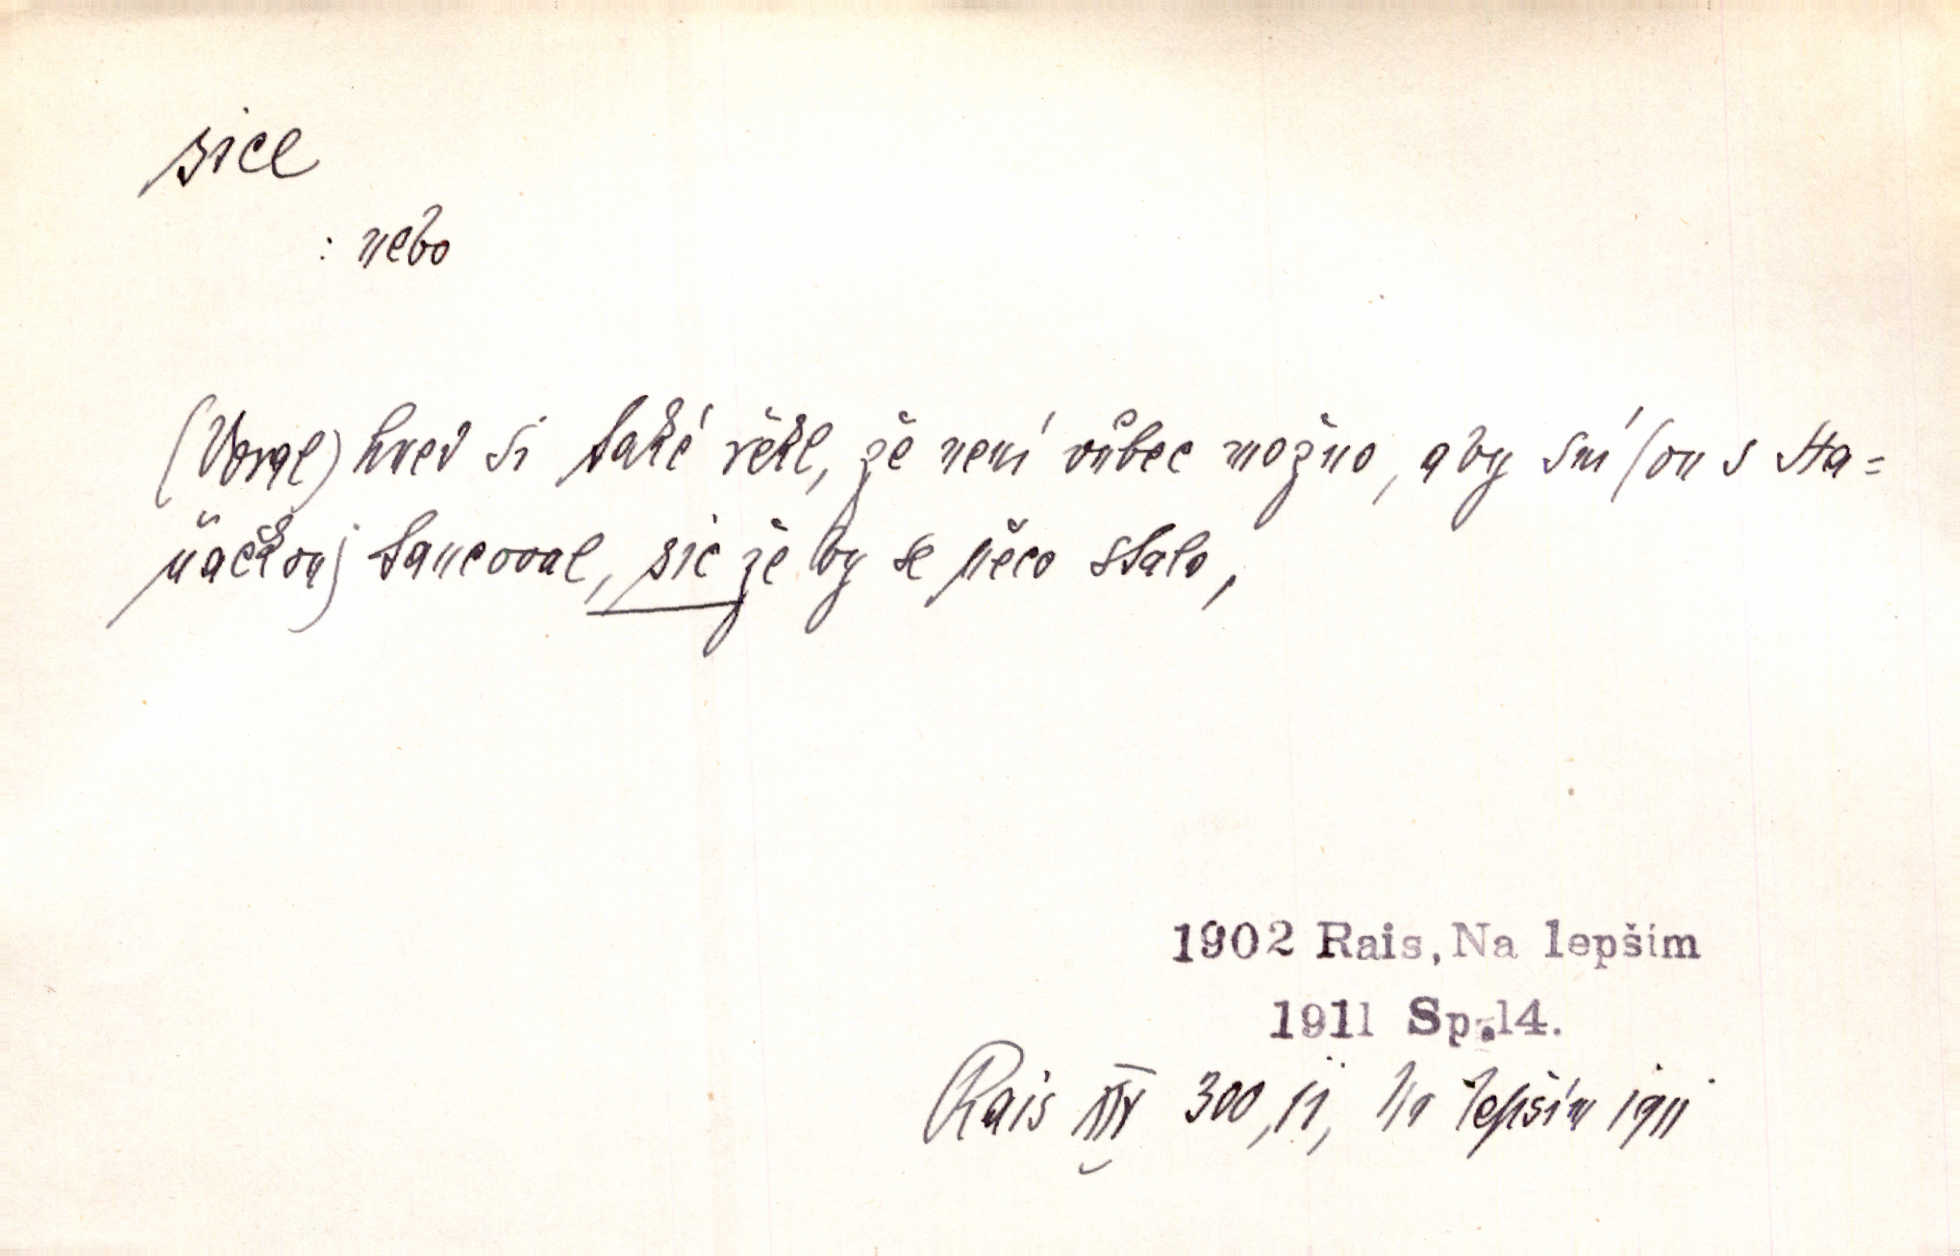 sice
: nebo
(Vorel) hned si také řekl, že není vůbec možno, aby s ní (on s Ha=
ňačkou) tancoval, sic že by se něco stalo,
1902 Rais, Na lepším
1911 Sp.14.
Rais XIV 300, II, Na lepším 1911